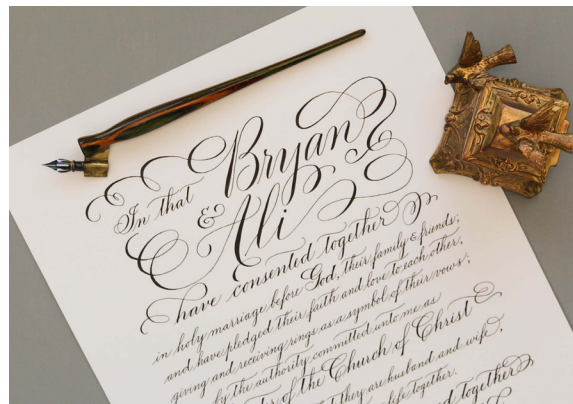 In that Bryan
& Ali
have consented together
in holy marriage before God, their family & friends;
and have pledged their faith and love to each other,
giving and receiving rings as a symbol of their vows;
by the authority committed unto me as
of the Church of Christ
they are husband and wife,
life together.
together